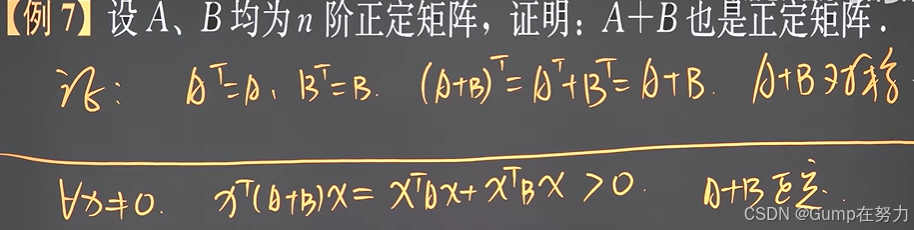 【例7】设A、B均为n阶正定矩阵，证明：A+B也是正定矩阵．
证： Aᵀ=A、Bᵀ=B. (A+B)ᵀ=Aᵀ+Bᵀ=A+B. A+B对称
∀x≠0. xᵀ(A+B)x= xᵀAx+xᵀBx >0. A+B正定.
CSDN @Gump在努力